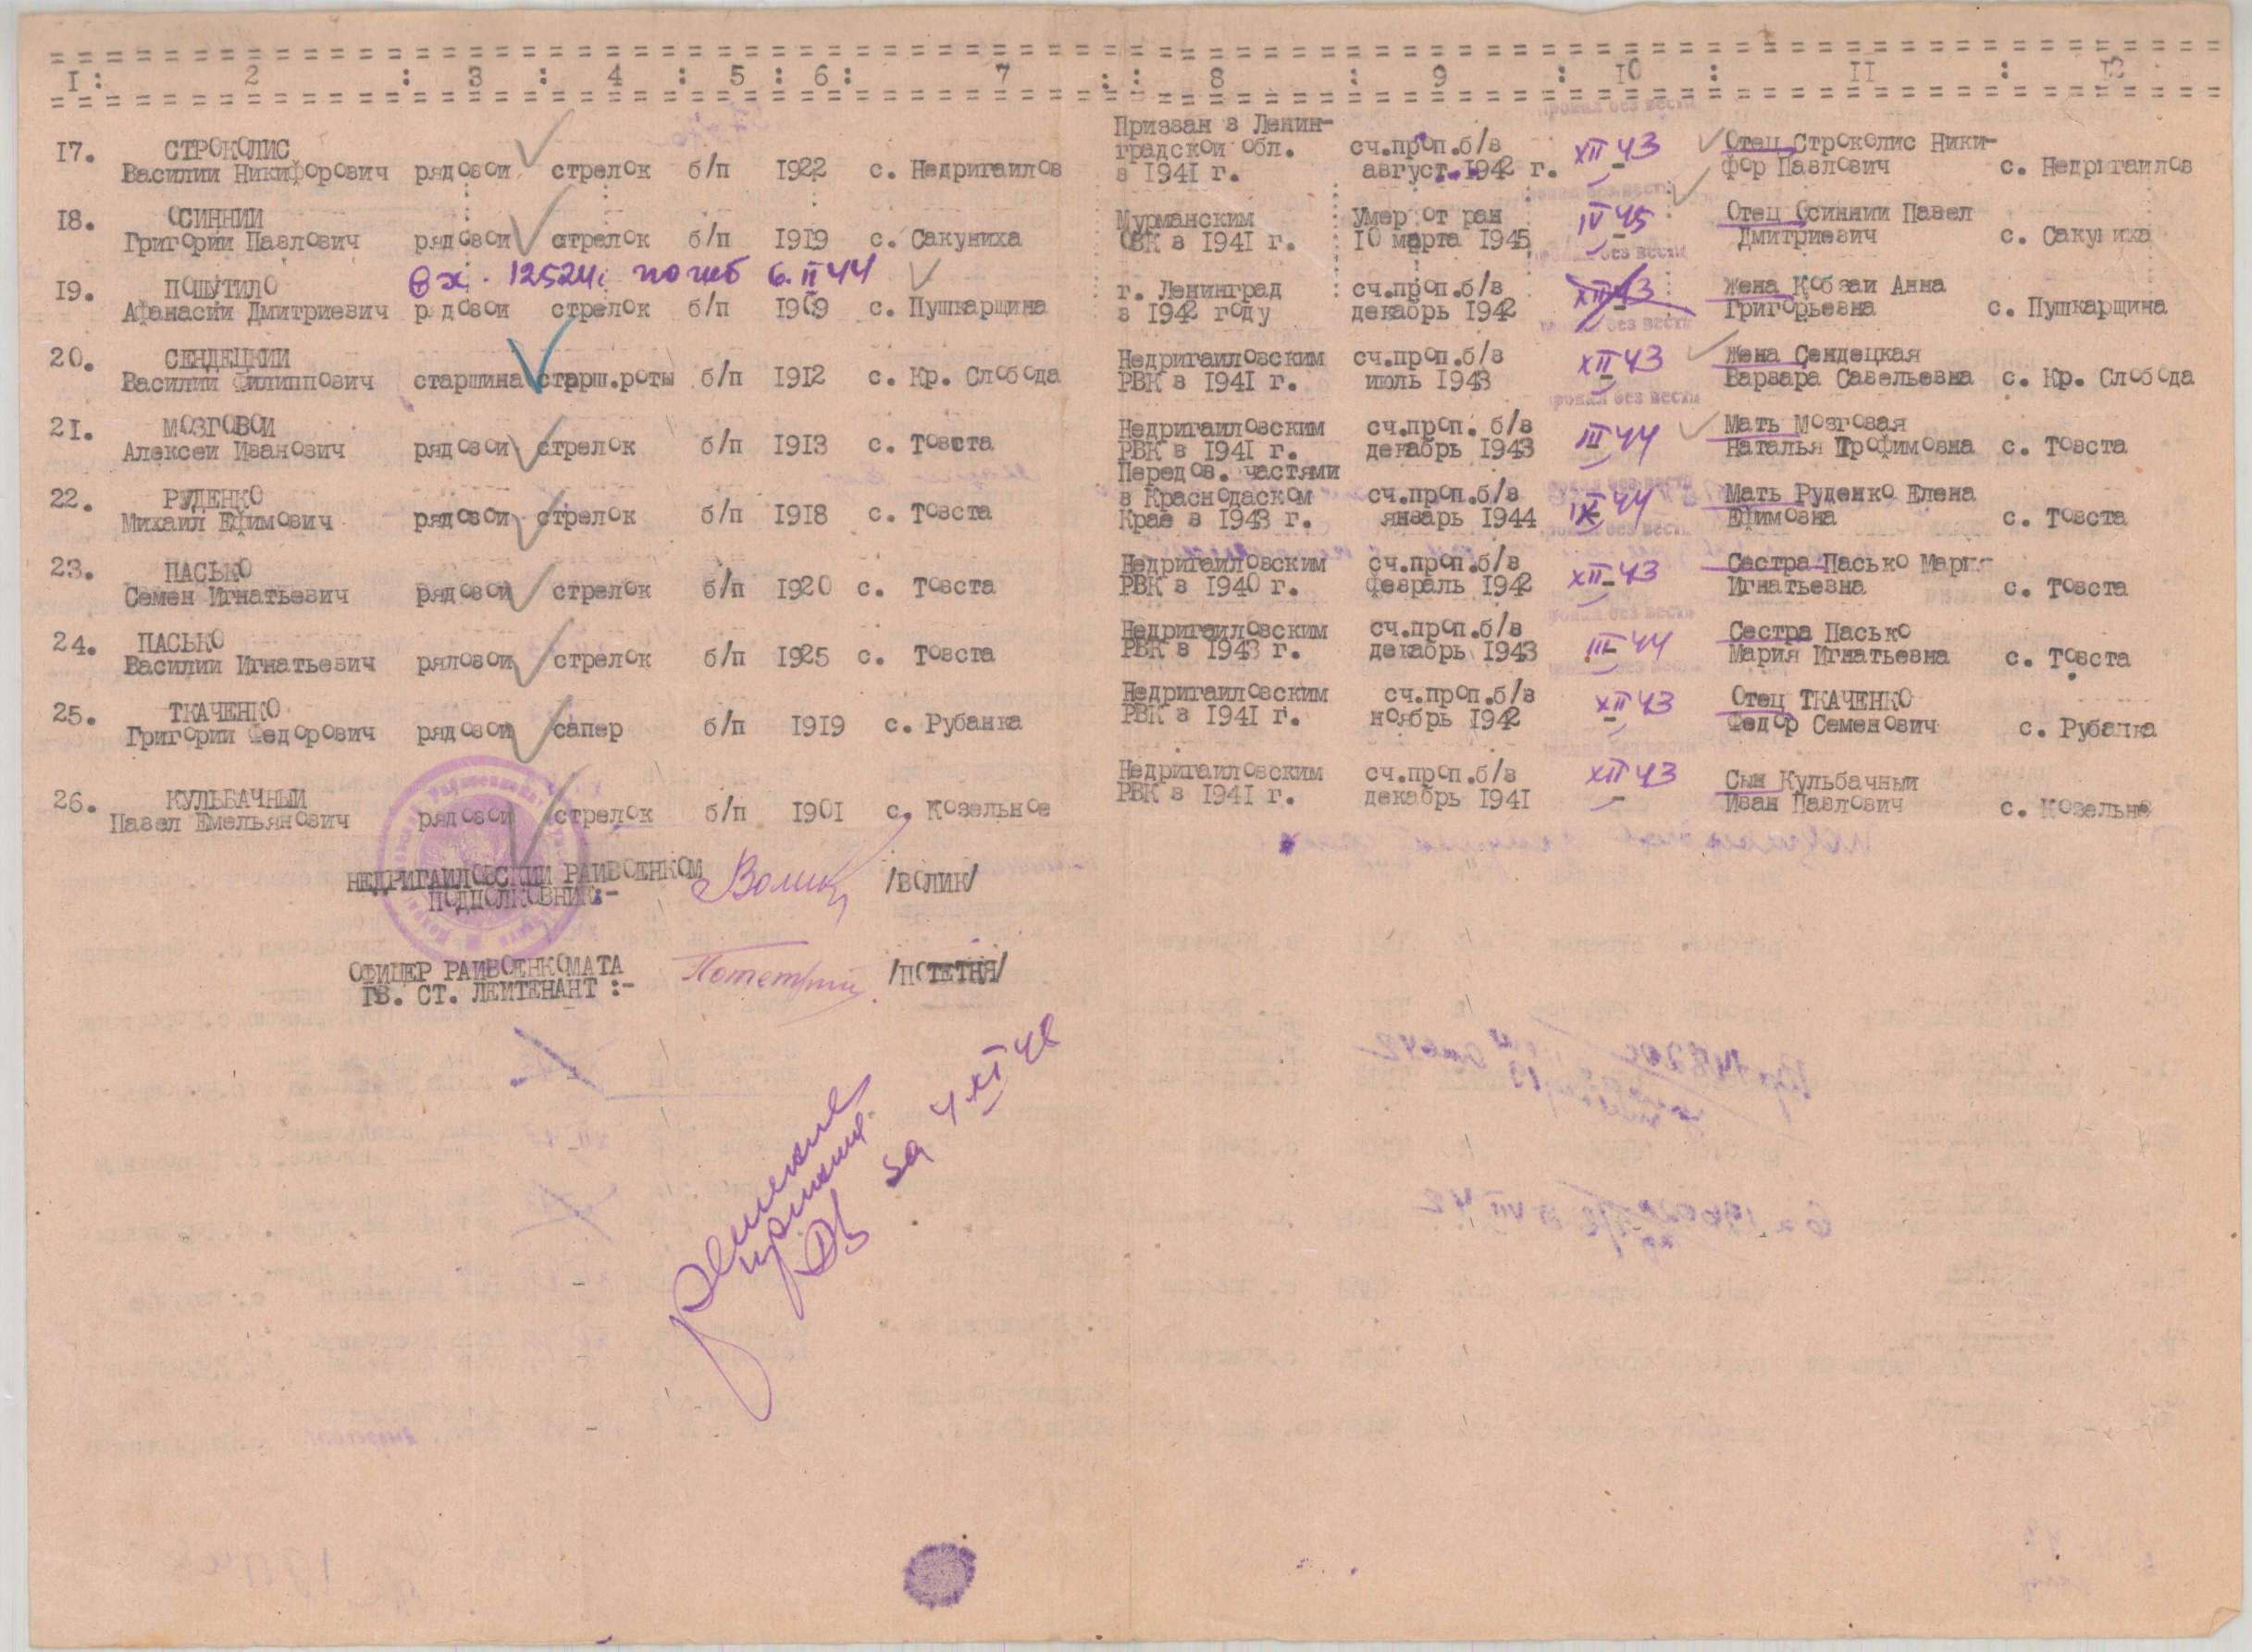 I : 2 : 3 : 4 : 5 : 6 : 7 : : 8 : 9 : I0 : II : I3
17. СТРОКОЛИС Призван в Ленин-
Василии Никифорович рядовои стрелок б/п 1922 с. Недригаилов градскои обл. сч.проп.б/в XII 43 Отец Строколис Ники-
в 1941 г. август 1942 г. фор Павлович с. Недригаилов
18. ОСИННИИ Мурманским Умер от ран IV 45 Отец Осиннии Павел
Григории Павлович рядовои стрелок б/п 1919 с. Сакуниха ОВК в 1941 г. 10 марта 1945 Дмитриевич с. Сакуниха
вх. 12524с погиб 6.II 44
19. ПОШУТИЛО г. Ленинград сч.проп.б/в XII 43 Жена Кобзаи Анна
Афанасии Дмитриевич рядовои стрелок б/п 1909 с. Пушкарщина в 1942 году декабрь 1942 Григорьевна с. Пушкарщина
20. СЕНДЕЦКИИ Недригаиловским сч.проп.б/в XII 43 Жена Сендецкая
Василии Филиппович старшина старш.роты б/п 1912 с. Кр. Слобода РВК в 1941 г. июль 1943 Варвара Савельевна с. Кр. Слобода
21. МОЗГОВОИ Недригаиловским сч.проп. б/в III 44 Мать Мозговая
Алексеи Иванович рядовои стрелок б/п 1913 с. Товста РВК в 1941 г. декабрь 1943 Наталья Трофимовна с. Товста
22. РУДЕНКО Передов. частями
в Краснодаском сч.проп.б/в IX 44 Мать Руденко Елена
Михаил Ефимович рядовои стрелок б/п 1918 с. Товста Крае в 1943 г. январь 1944 Ефимовна с. Товста
23. ПАСЬКО Недригаиловским сч.проп.б/в XII 43 Сестра Пасько Мария
Семен Игнатьевич рядовой стрелок б/п 1920 с. Товста РВК в 1940 г. февраль 1942 Игнатьевна с. Товста
24. ПАСЬКО Недригаиловским сч.проп.б/в III 44 Сестра Пасько
Василии Игнатьевич рядовои стрелок б/п 1925 с. Товста РВК в 1943 г. декабрь 1943 Мария Игнатьевна с. Товста
25. ТКАЧЕНКО Недригаиловским сч.проп.б/в XII 43 Отец ТКАЧЕНКО
Григории Федорович рядовои сапер б/п 1919 с. Рубанка РВК в 1941 г. ноябрь 1942 Федор Семенович с. Рубанка
26. КУЛЬБАЧНЫИ Недригаиловским сч.проп.б/в XII 43 Сын Кульбачныи
Павел Емельянович рядовои стрелок б/п 1901 с. Козельное РВК в 1941 г. декабрь 1941 Иван Павлович с. Козельне
НЕДРИГАИЛОВСКИИ РАИВОЕНКОМ
ПОДПОЛКОВНИК:- Волик /ВОЛИК/
ОФИЦЕР РАИВОЕНКОМАТА
ГВ. СТ. ЛЕИТЕНАНТ :- /ПОТЕТНЯ/
за 4 XI 46